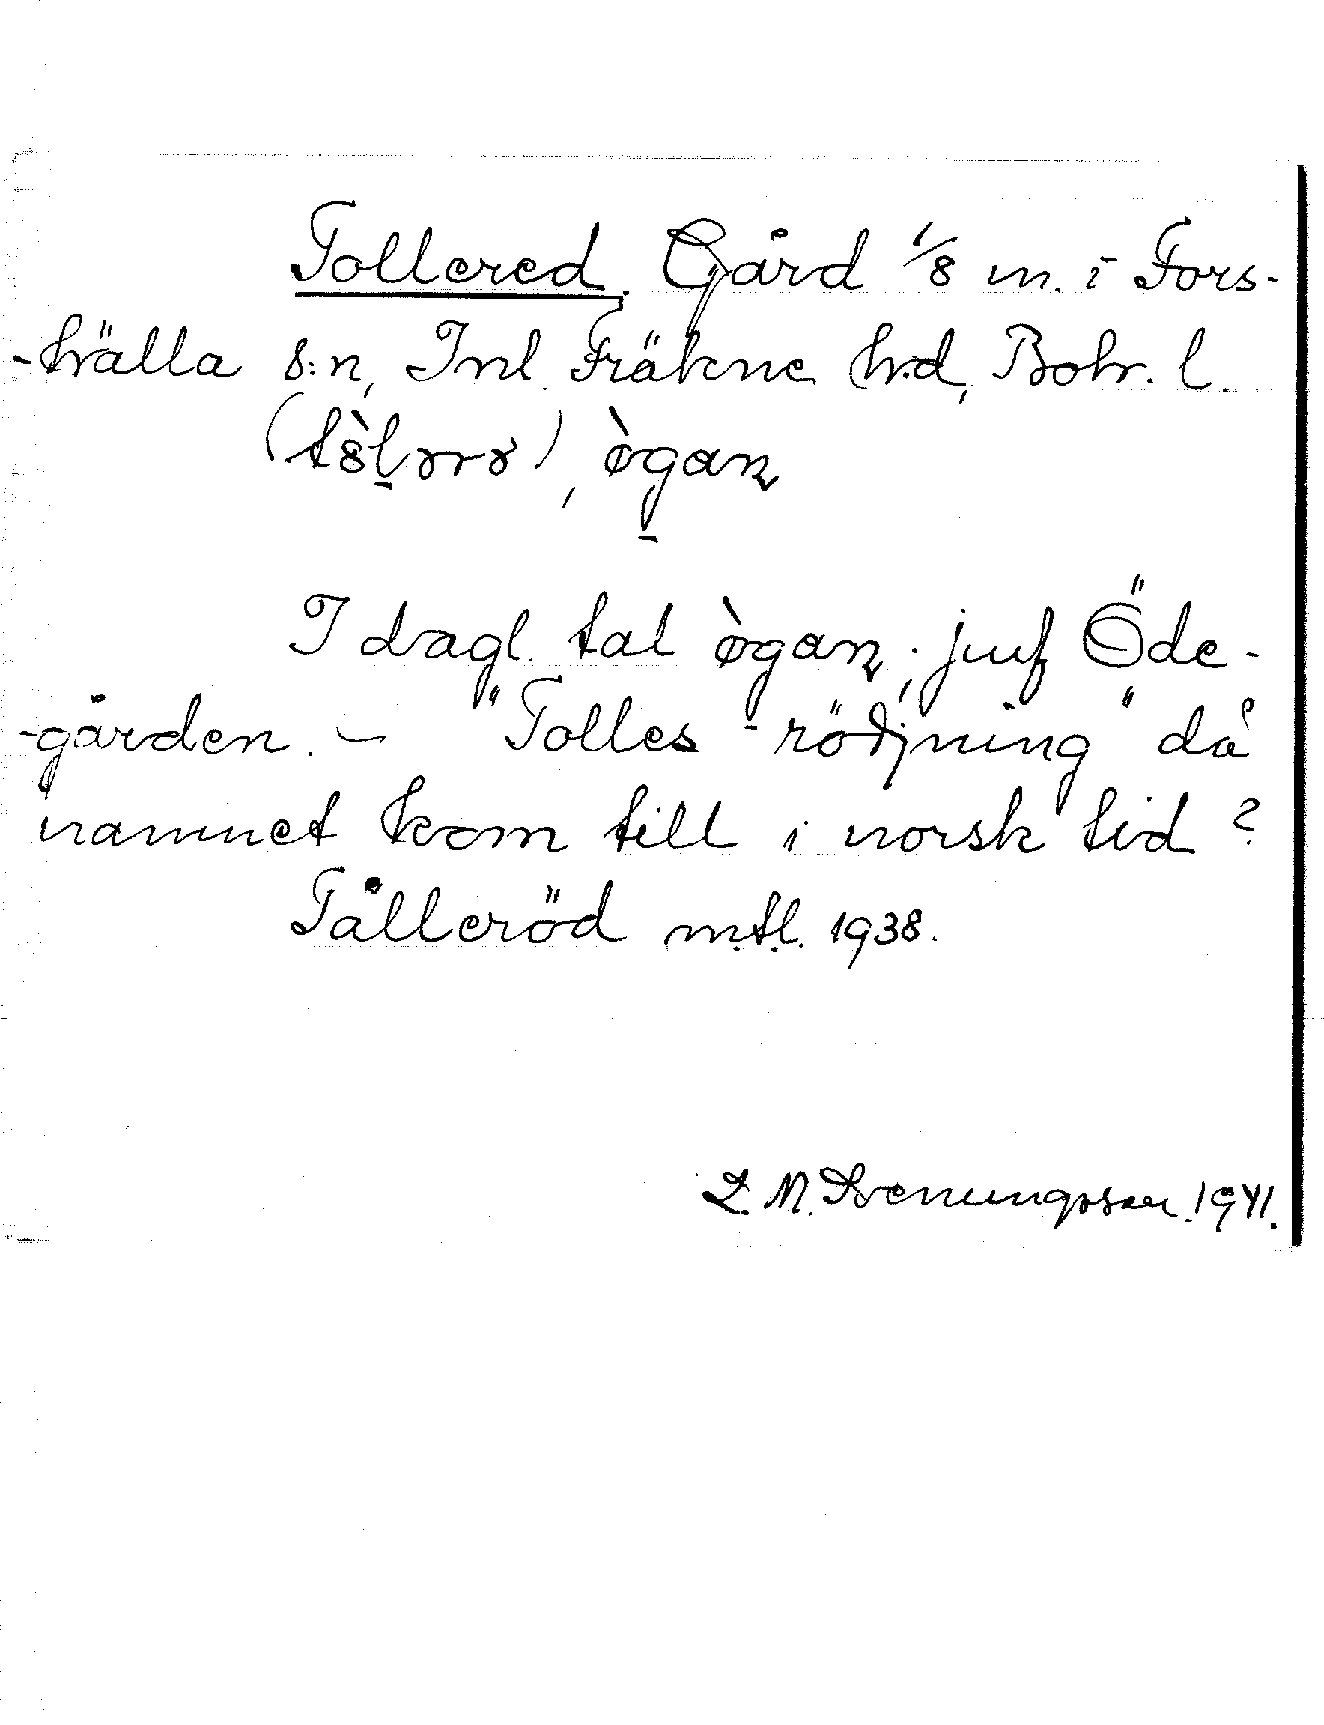 Tollered. Gård 1/8 m. i Fors-
-hälla s:n, Inl. Fräkne h:d, Boh. l.
(tȯ̀l̠ərə), ø̀gan̠
I dagl. tal ø̀gan̠; juf Öde-
-gården. – "Tolles-rödjning" då
namnet kom till i norsk tid?
Tålleröd m.t.l. 1938.
L. M. Svenungsson. 1941.